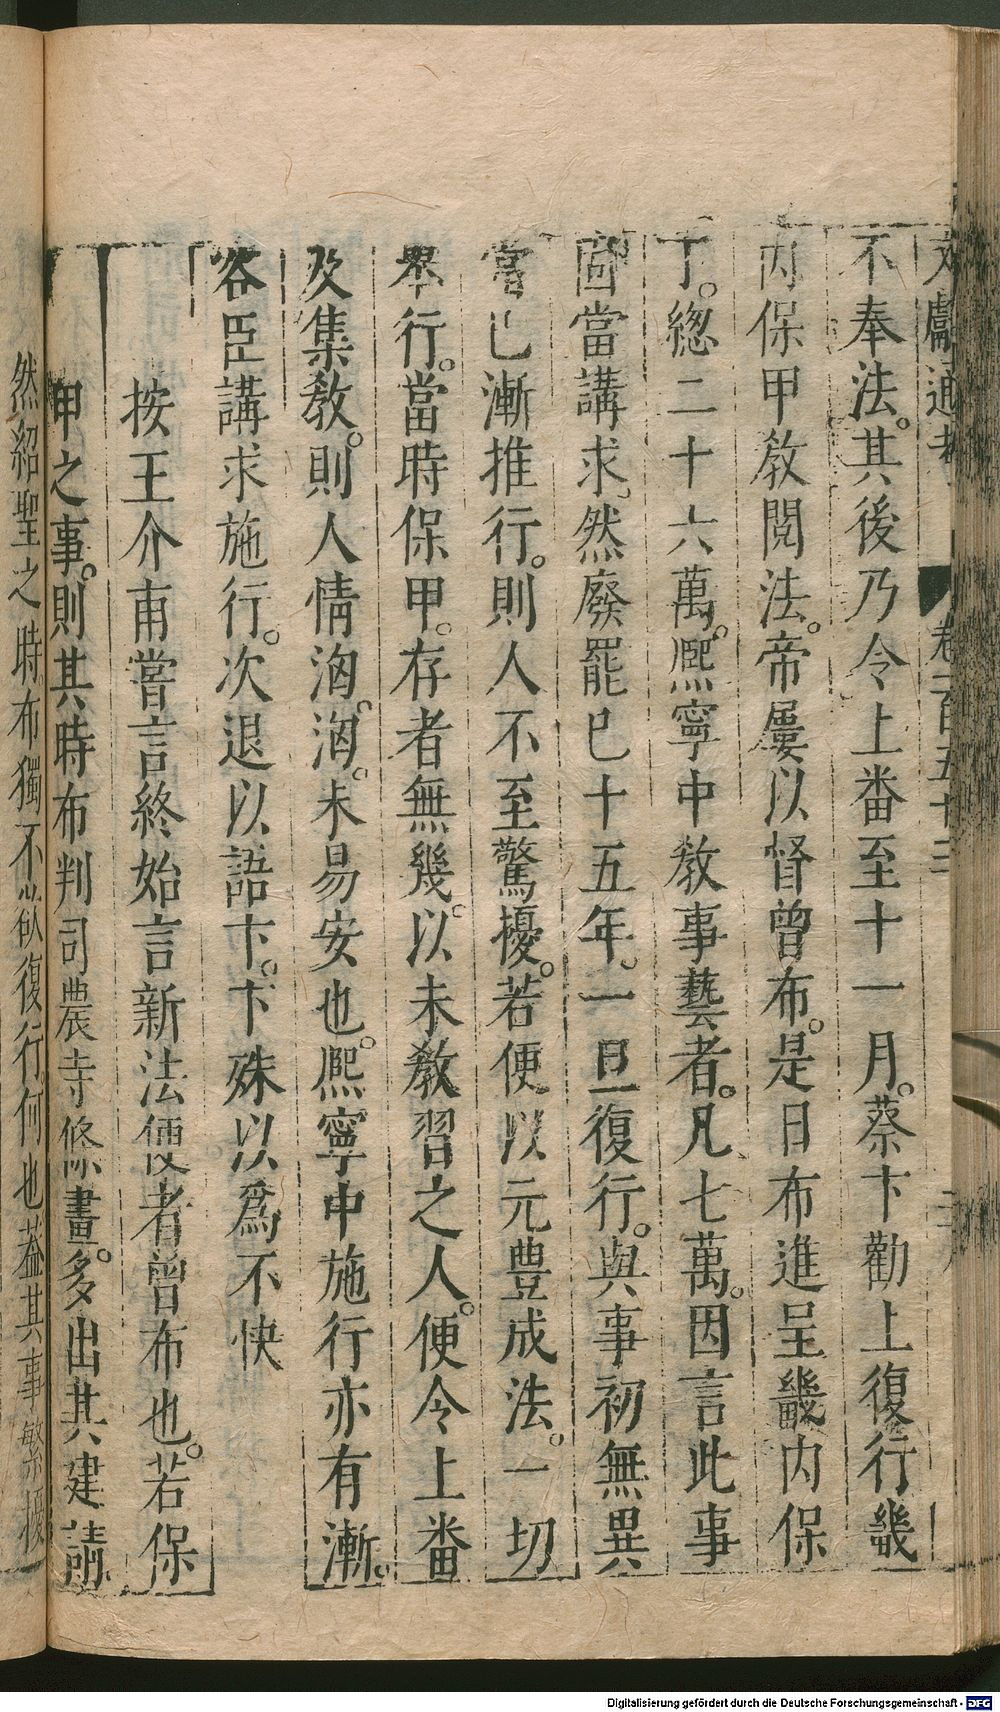 文獻通考 卷一百五十三
不奉法。其後乃令上畨至十一月。蔡卞勸上復行畿
内保甲敎閱法。帝屢以督曾布。是日布進呈畿内保
丁。總二十六萬。熙寧中敎事藝者。凡七萬。因言此事
固當講求、然廢罷已十五年。一旦復行。與事初無異
當已漸推行。則人不至驚擾。若便以元豊成法。一切
舉行。當時保甲。存者無幾。以未敎習之人。便令上畨
及集敎。則人情洶。洶。未易安也。熙寧中施行亦有漸。
容臣講求施行。次退以語卞。卞殊以爲不快
按王介甫嘗言終始言新法便者曾布也。若保
甲之事。則其時布判司農寺條畫。多出其建請
然紹聖之時布獨不欲復行何也葢其事繁擾
Digitalisierung gefördert durch die Deutsche Forschungsgemeinschaft - DFG